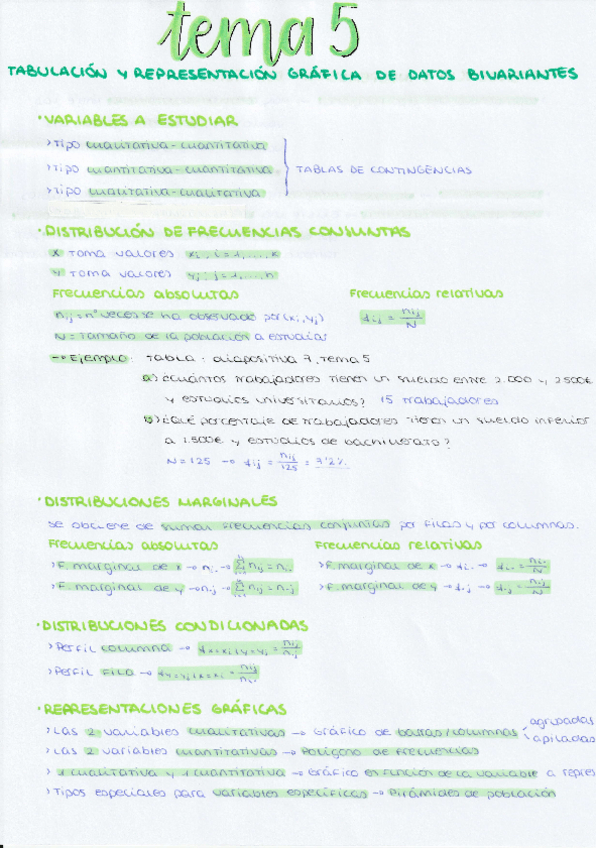 tema 5
TABULACIÓN Y REPRESENTACIÓN GRÁFICA DE DATOS BIVARIANTES
· VARIABLES A ESTUDIAR
> Tipo cualitativa - cuantitativa
> Tipo cuantitativa - cuantitativa
> Tipo cualitativa - cualitativa
TABLAS DE CONTINGENCIAS
· DISTRIBUCIÓN DE FRECUENCIAS CONJUNTAS
X toma valores xi, i = 1, ..., k
Y toma valores yj; j = 1, ..., h
Frecuencias absolutas Frecuencias relativas
nij = nº veces se ha observado por (xi, yj) fij = nij/N
N = Tamaño de la población a estudiar
→ Ejemplo: tabla: diapositiva 7, tema 5
a) ¿Cuántos trabajadores tienen un sueldo entre 2.000 y 2500€
y estudios universitarios? 15 trabajadores
b) ¿Qué porcentaje de trabajadores tienen un sueldo inferior
a 1.500€ y estudios de bachillerato?
N = 125 → fij = nij/125 = 7'2%
· DISTRIBUCIONES MARGINALES
Se obtiene de sumar frecuencias conjuntas por filas y por columnas.
Frecuencias absolutas Frecuencias relativas
> F. marginal de x → ni. → Σ nij = ni. > F. marginal de x → fi. → fi. = ni./N
> F. marginal de y → n.j → Σ nij = n.j > F. marginal de y → f.j → f.j = n.j/N
· DISTRIBUCIONES CONDICIONADAS
> Perfil columna → fx=xi|y=yj = nij/n.j
> Perfil fila → fy=yj|x=xi = nij/ni.
· REPRESENTACIONES GRÁFICAS
> Las 2 variables cualitativas → Gráfico de barras/columnas agrupadas
apiladas
> Las 2 variables cuantitativas → Polígono de frecuencias
> 1 cualitativa y 1 cuantitativa → Gráfico en función de la variable a repres
> Tipos especiales para variables específicas → Pirámides de población